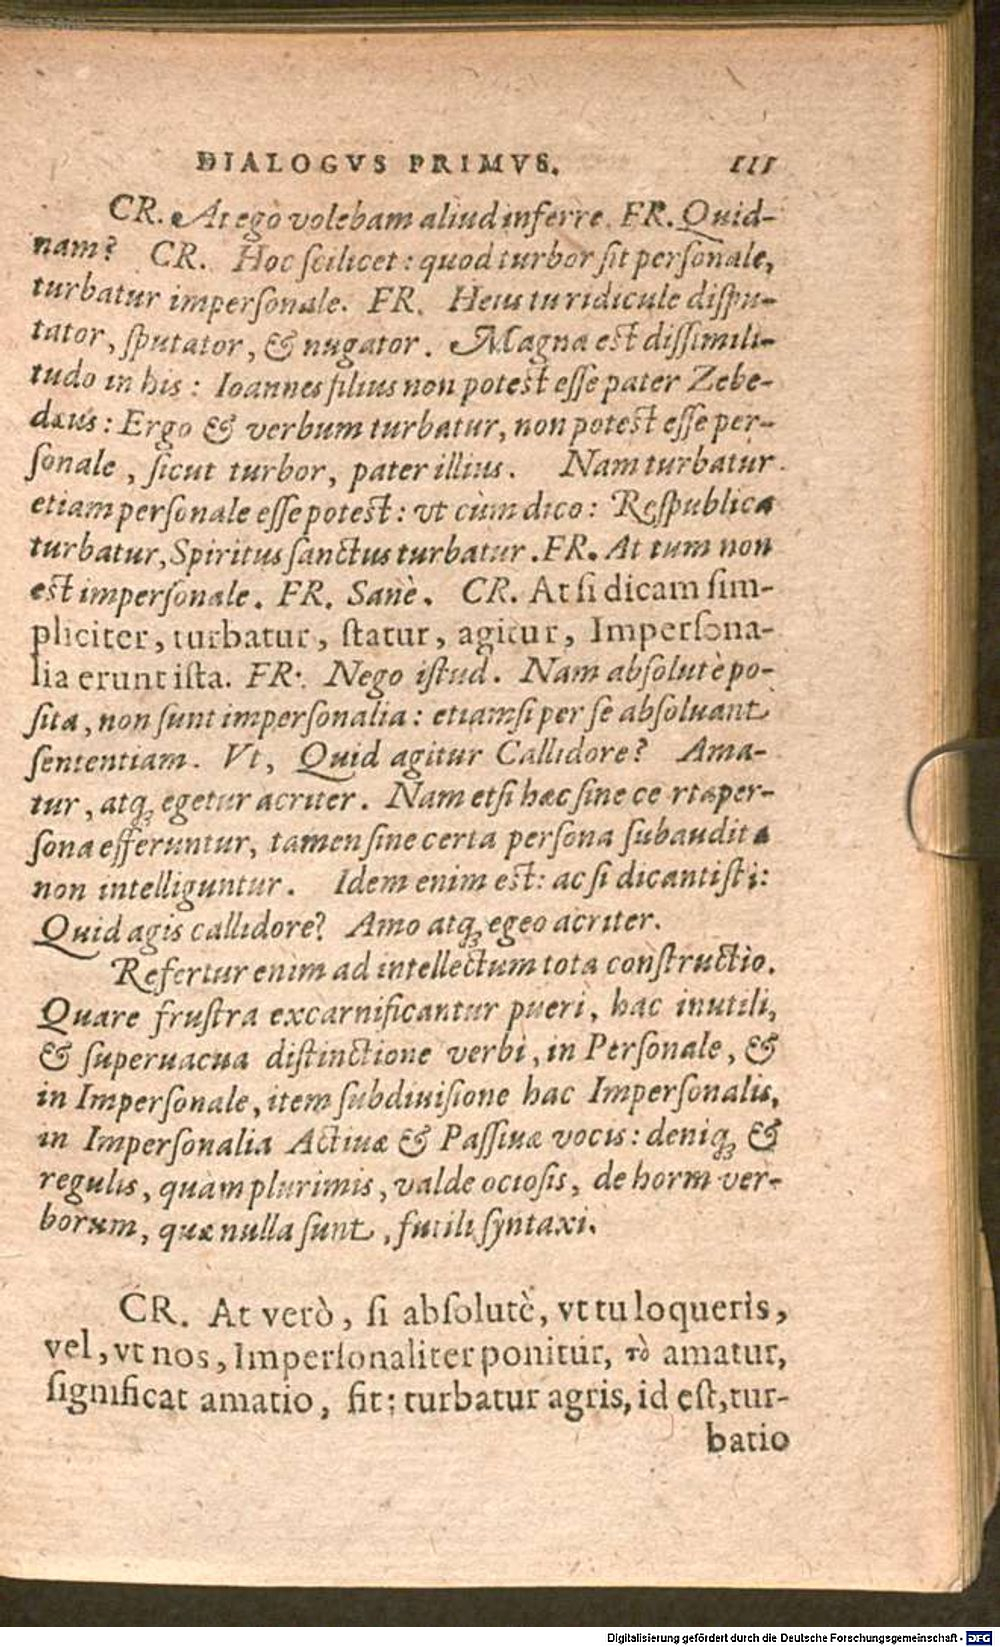 DIALOGVS PRIMVS. 111
CR. At ego volebam aliud inferre. FR. Quid-
nam? CR. Hoc scilicet: quod turbor sit personale,
turbatur impersonale. FR. Heus tu ridicule dispu-
tator, sputator, & nugator. Magna est dissimili-
tudo in his: Ioannes filius non potest esse pater Zebe-
dæus: Ergo & verbum turbatur, non potest esse per-
sonale, sicut turbor, pater illius. Nam turbatur
etiam personale esse potest: vt cùm dico: Respublica
turbatur, Spiritus sanctus turbatur. FR. At tum non
est impersonale. FR. Sanè. CR. At si dicam sim-
pliciter, turbatur, statur, agitur, Impersona-
lia erunt ista. FR. Nego istud. Nam absolutè po-
sita, non sunt impersonalia: etiamsi per se absoluant
sententiam. Vt, Quid agitur Callidore? Ama-
tur, atq; egetur acriter. Nam etsi hæc sine ce rta per-
sona efferuntur, tamen sine certa persona subaudita
non intelliguntur. Idem enim est: ac si dicant isti:
Quid agis callidore? Amo atq; egeo acriter.
Refertur enim ad intellectum tota constructio.
Quare frustra excarnificantur pueri, hac inutili,
& superuacua distinctione verbi, in Personale, &
in Impersonale, item subdiuisione hac Impersonalis,
in Impersonalia Actiuæ & Passiuæ vocis: deniq; &
regulis, quàm plurimis, valde otiosis, de horm ver-
borum, quæ nulla sunt, futili syntaxi.
CR. At verò, si absolutè, vt tu loqueris,
vel, vt nos, Impersonaliter ponitur, τὸ amatur,
significat amatio, fit: turbatur agris, id est, tur-
batio
Digitalisierung gefördert durch die Deutsche Forschungsgemeinschaft - DFG